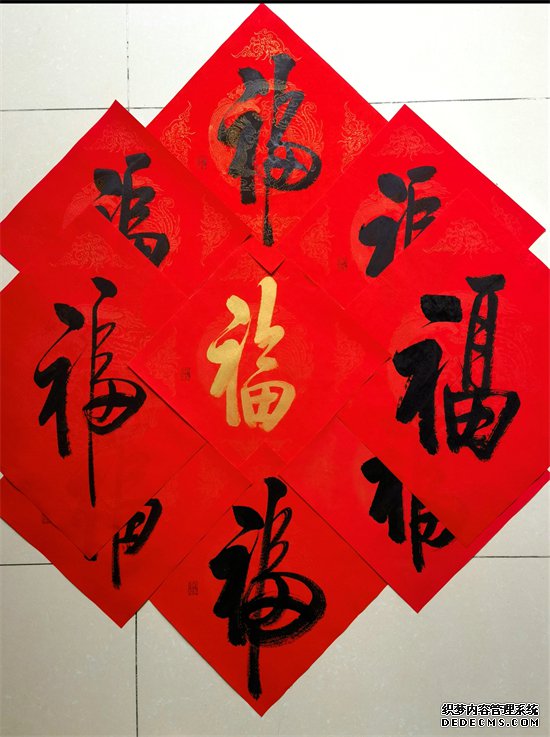 福
福
福
福
福
织梦内容管理系统
DEDECMS.COM